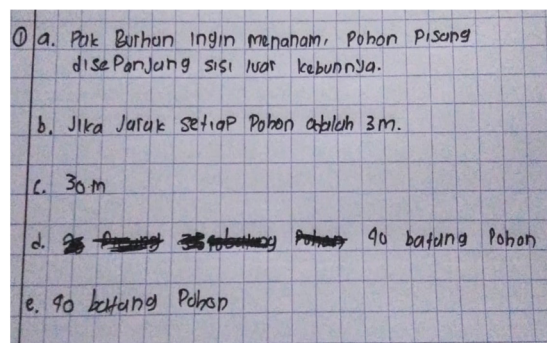 ① a. Pak Burhan ingin menanam, pohon pisang
disepanjang sisi luar kebunnya.
b. Jika Jarak setiap Pohon adalah 3m.
c. 30 m
d. 40 batang Pohon
e. 40 batang Pohon